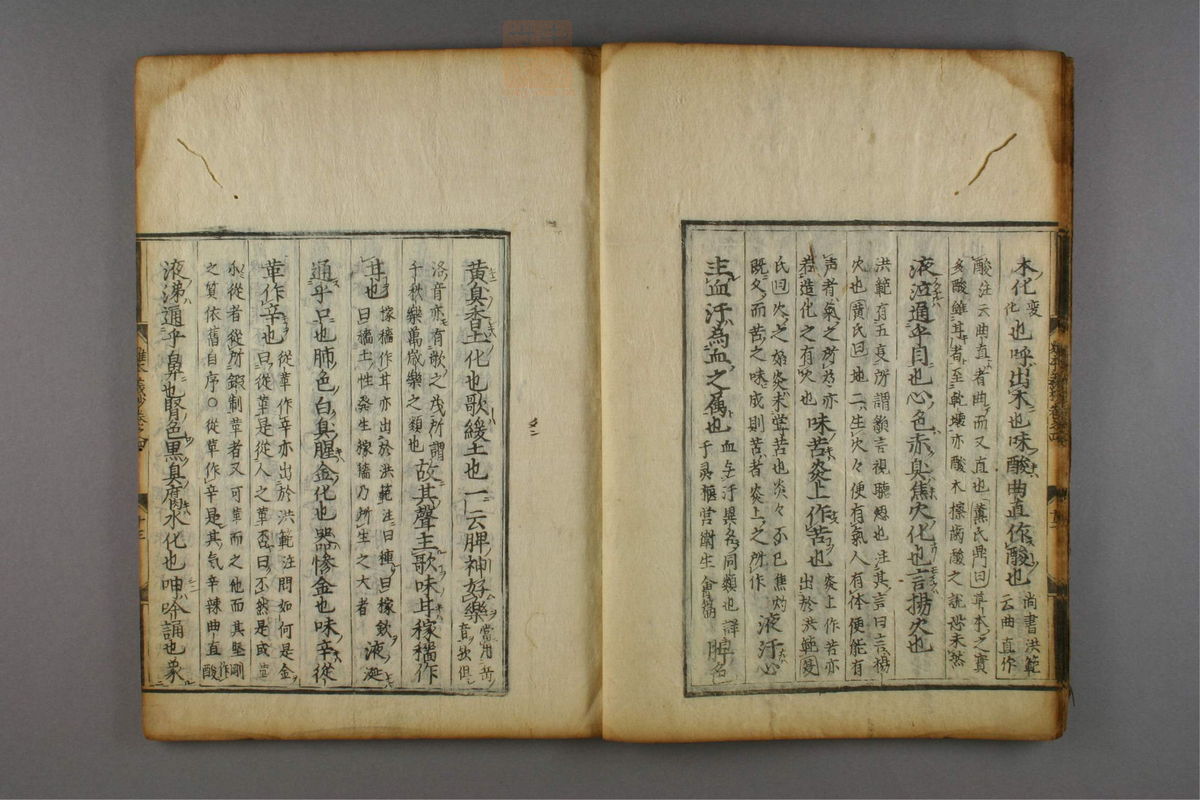 木化變化也呼出木也味酸曲直作酸也尚書洪範云曲直作
酸注云曲直者曲而又直也董氏鼎曰草木之實
多酸雖其者至乾壞亦酸木擦齒酸之說恐未然
液泣通乎目也心色赤臭焦火化也言揚火也
洪範有五事所謂貌言視聽思也注其言曰言揚
火也黃氏曰地二生火々便有氣人有体便能有
声者氣之所為亦若造化之有火也味苦炎上作苦也炎上作苦亦出於洪範
氏曰火之始炎未嘗苦也炎々不已焦灼
既久而苦之味成則苦者炎上之所作液汗心
主血汗為血之属也血与汗異名同類也詳于灵樞営衛生會篇脾色
黃臭香土化也歌緩土也一云脾神好樂
洛音亦有歌之茂所謂千秋樂萬歲樂之類也故其聲主歌味甘稼穡作
甘也稼穡作甘亦出於洪範注曰種曰稼歛曰穡土性發生稼穡乃所生之大者液涎
通乎口也肺色白臭腥金化也器慘金也味辛從
革作辛也從革作辛亦出於洪範注問如何是金曰從革是從人之革否曰不然是或
從者從所鍛制革者又可革而之他而其堅剛
之質依舊自序○從革作辛是其氣辛辣曲直作酸
液涕通乎鼻也腎色黑臭腐水化也呻吟誦也象